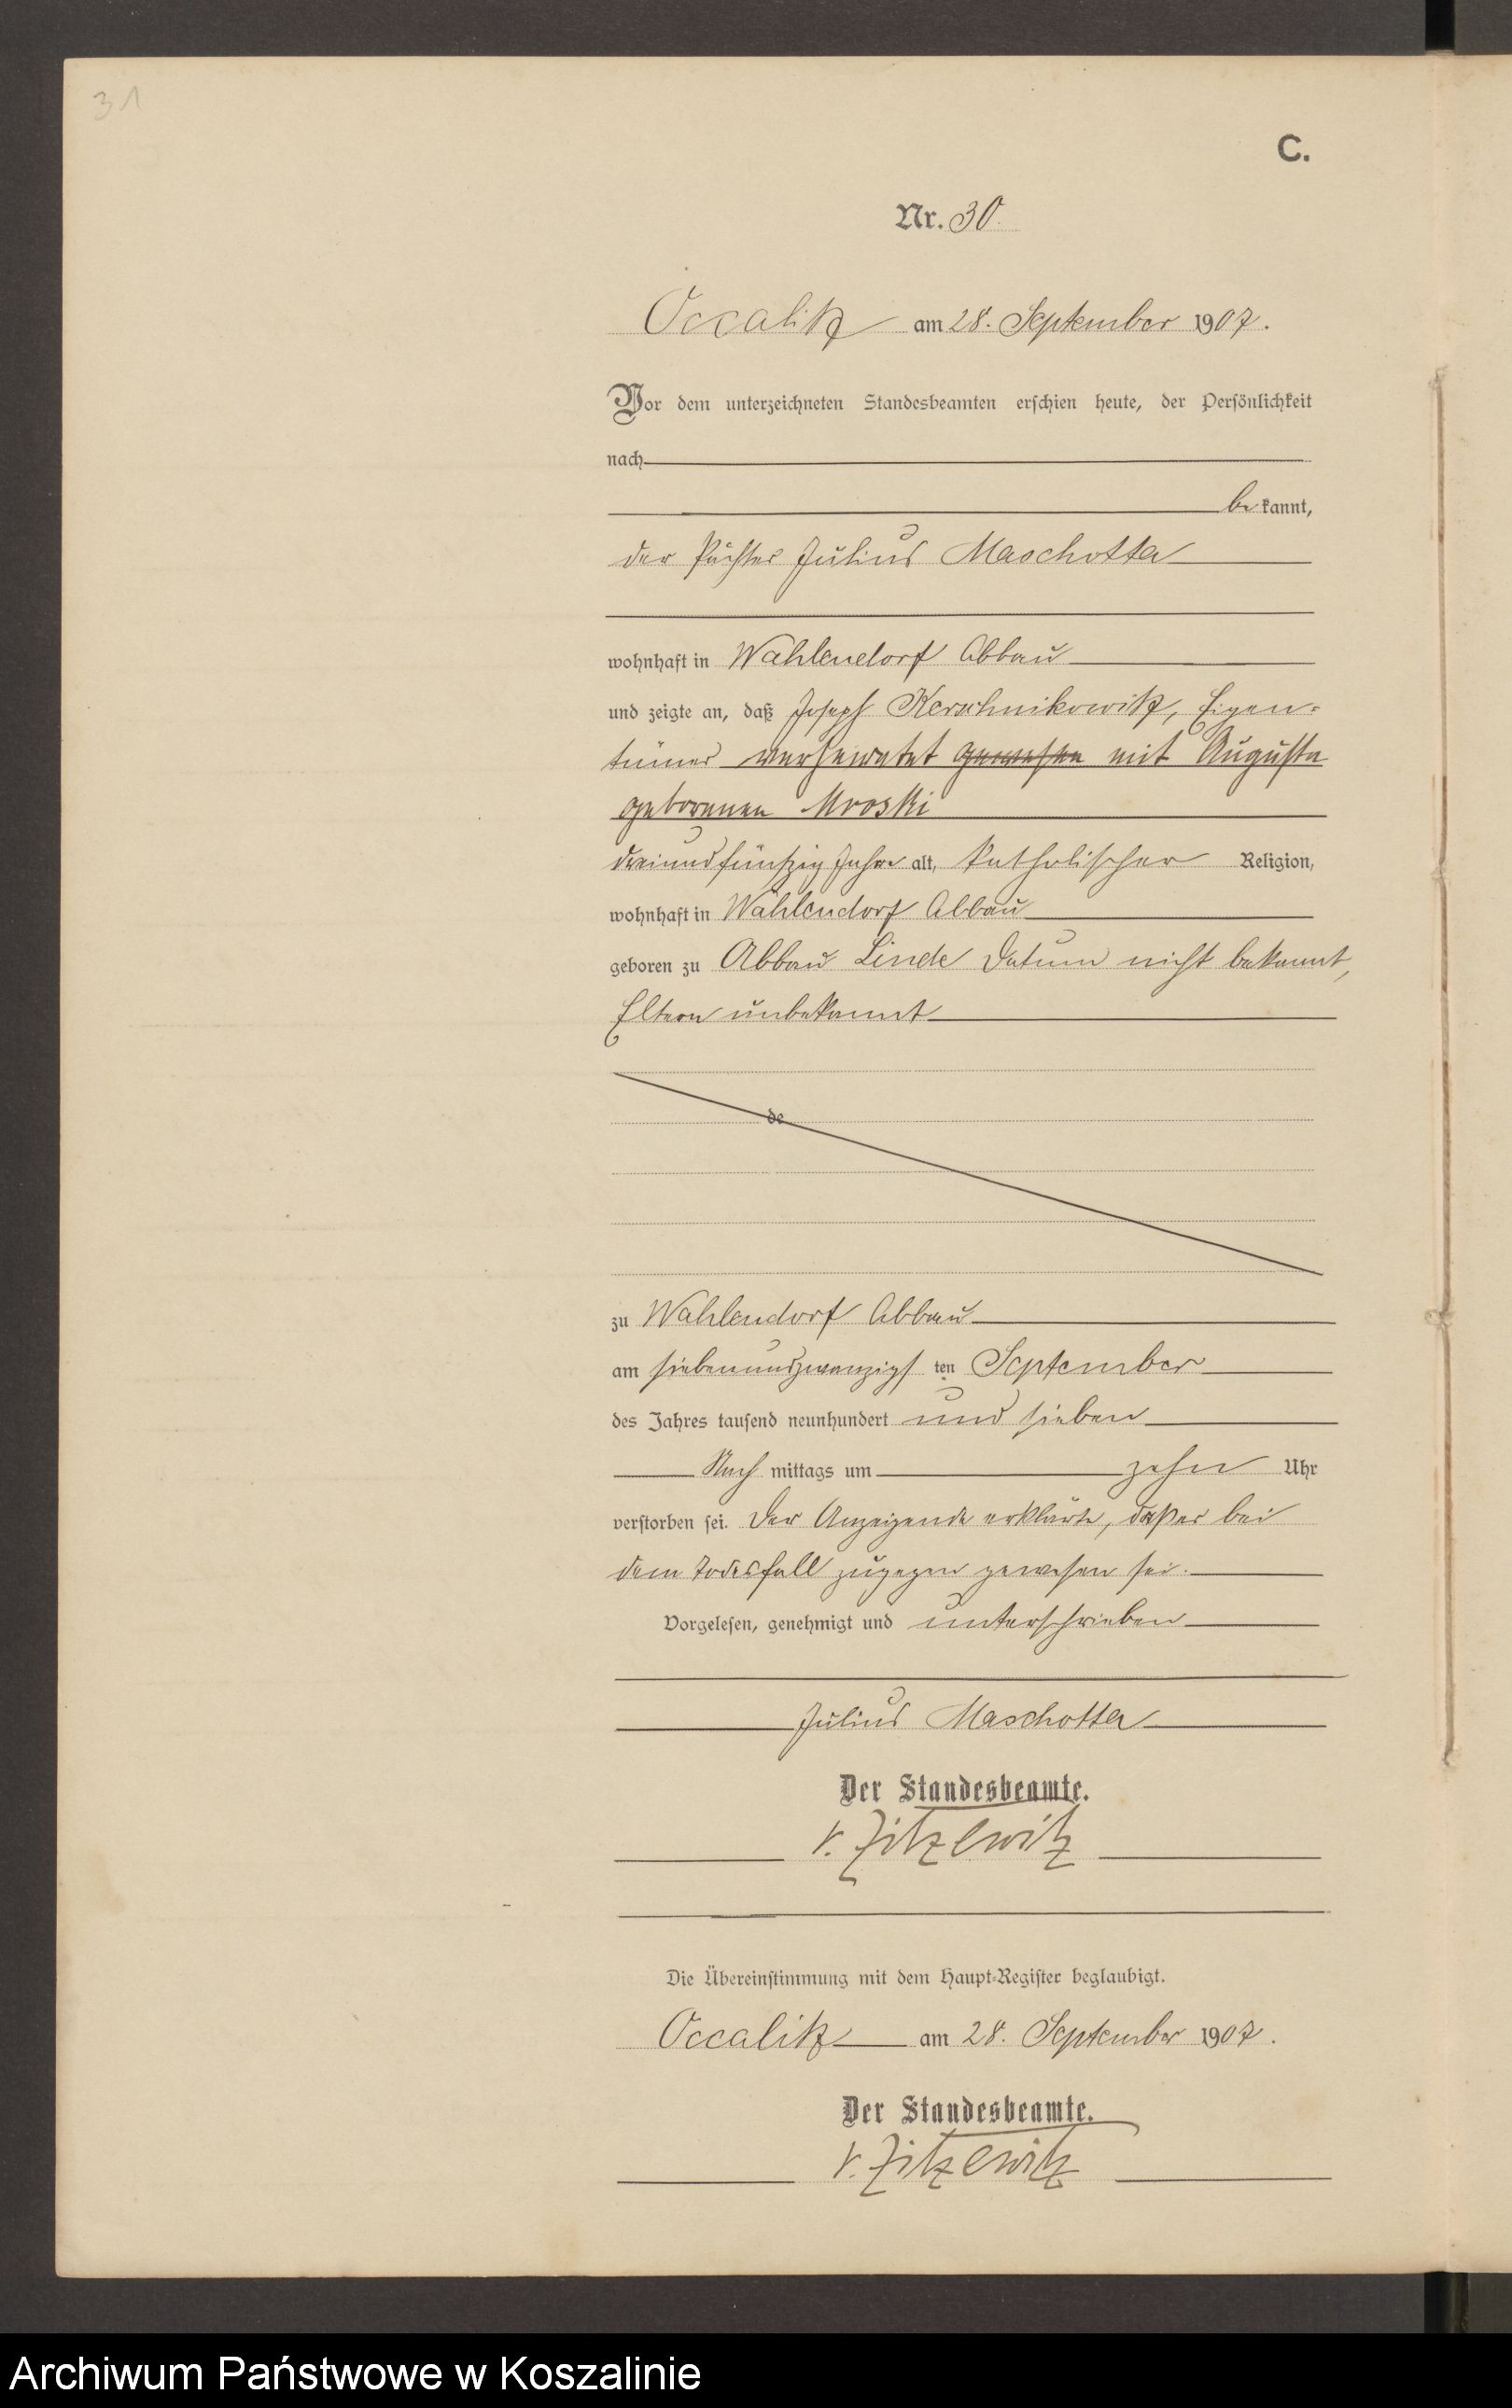 31
C.
Nr. 30.
Occalitz am 28. September 1907.
Vor dem unterzeichneten Standesbeamten erschien heute, der Persönlichkeit
nach
bekannt,
der Pächter Julius Maschotta
wohnhaft in Wahlendorf Abbau
und zeigte an, daß Joseph Kerschnikowitz, Eigen-
tümer verheiratet gewesen mit Auguste
geborenen Mroski
dreiundfünfzig Jahre alt, katholischer Religion,
wohnhaft in Wahlendorf Abbau
geboren zu Abbau Linde Datum nicht bekannt,
Eltern unbekannt
de
zu Wahlendorf Abbau
am siebenundzwanzigsten September
des Jahres tausend neunhundert und sieben
Nach mittags um zehn Uhr
verstorben sei. Der Anzeigende erklärte, daß er bei
dem Todesfall zugegen gewesen sei.
Vorgelesen, genehmigt und unterschrieben
Julius Maschotta
Der Standesbeamte.
v. Zitzewitz
Die Übereinstimmung mit dem Haupt-Register beglaubigt.
Occalitz am 28. September 1907.
Der Standesbeamte.
v. Zitzewitz
Archiwum Państwowe w Koszalinie